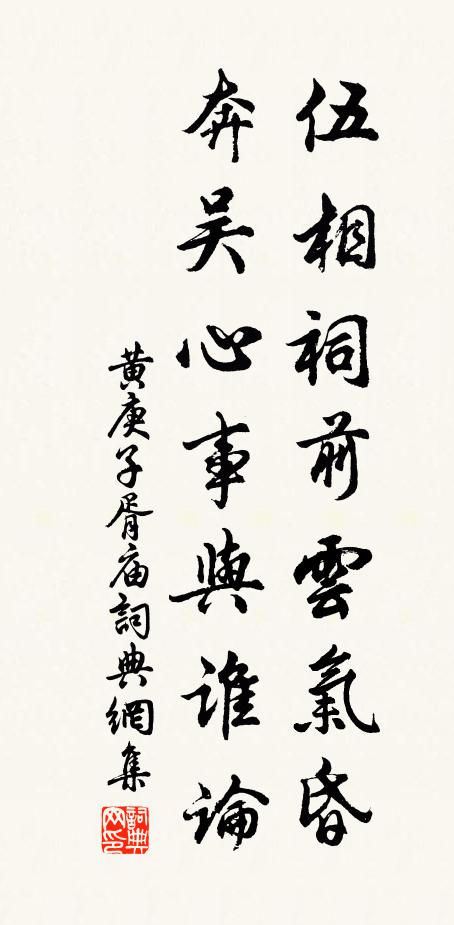 伍相祠前雲氣昏
奔吴心事與誰論
黄庚子胥庙詞典網集
詞典网印